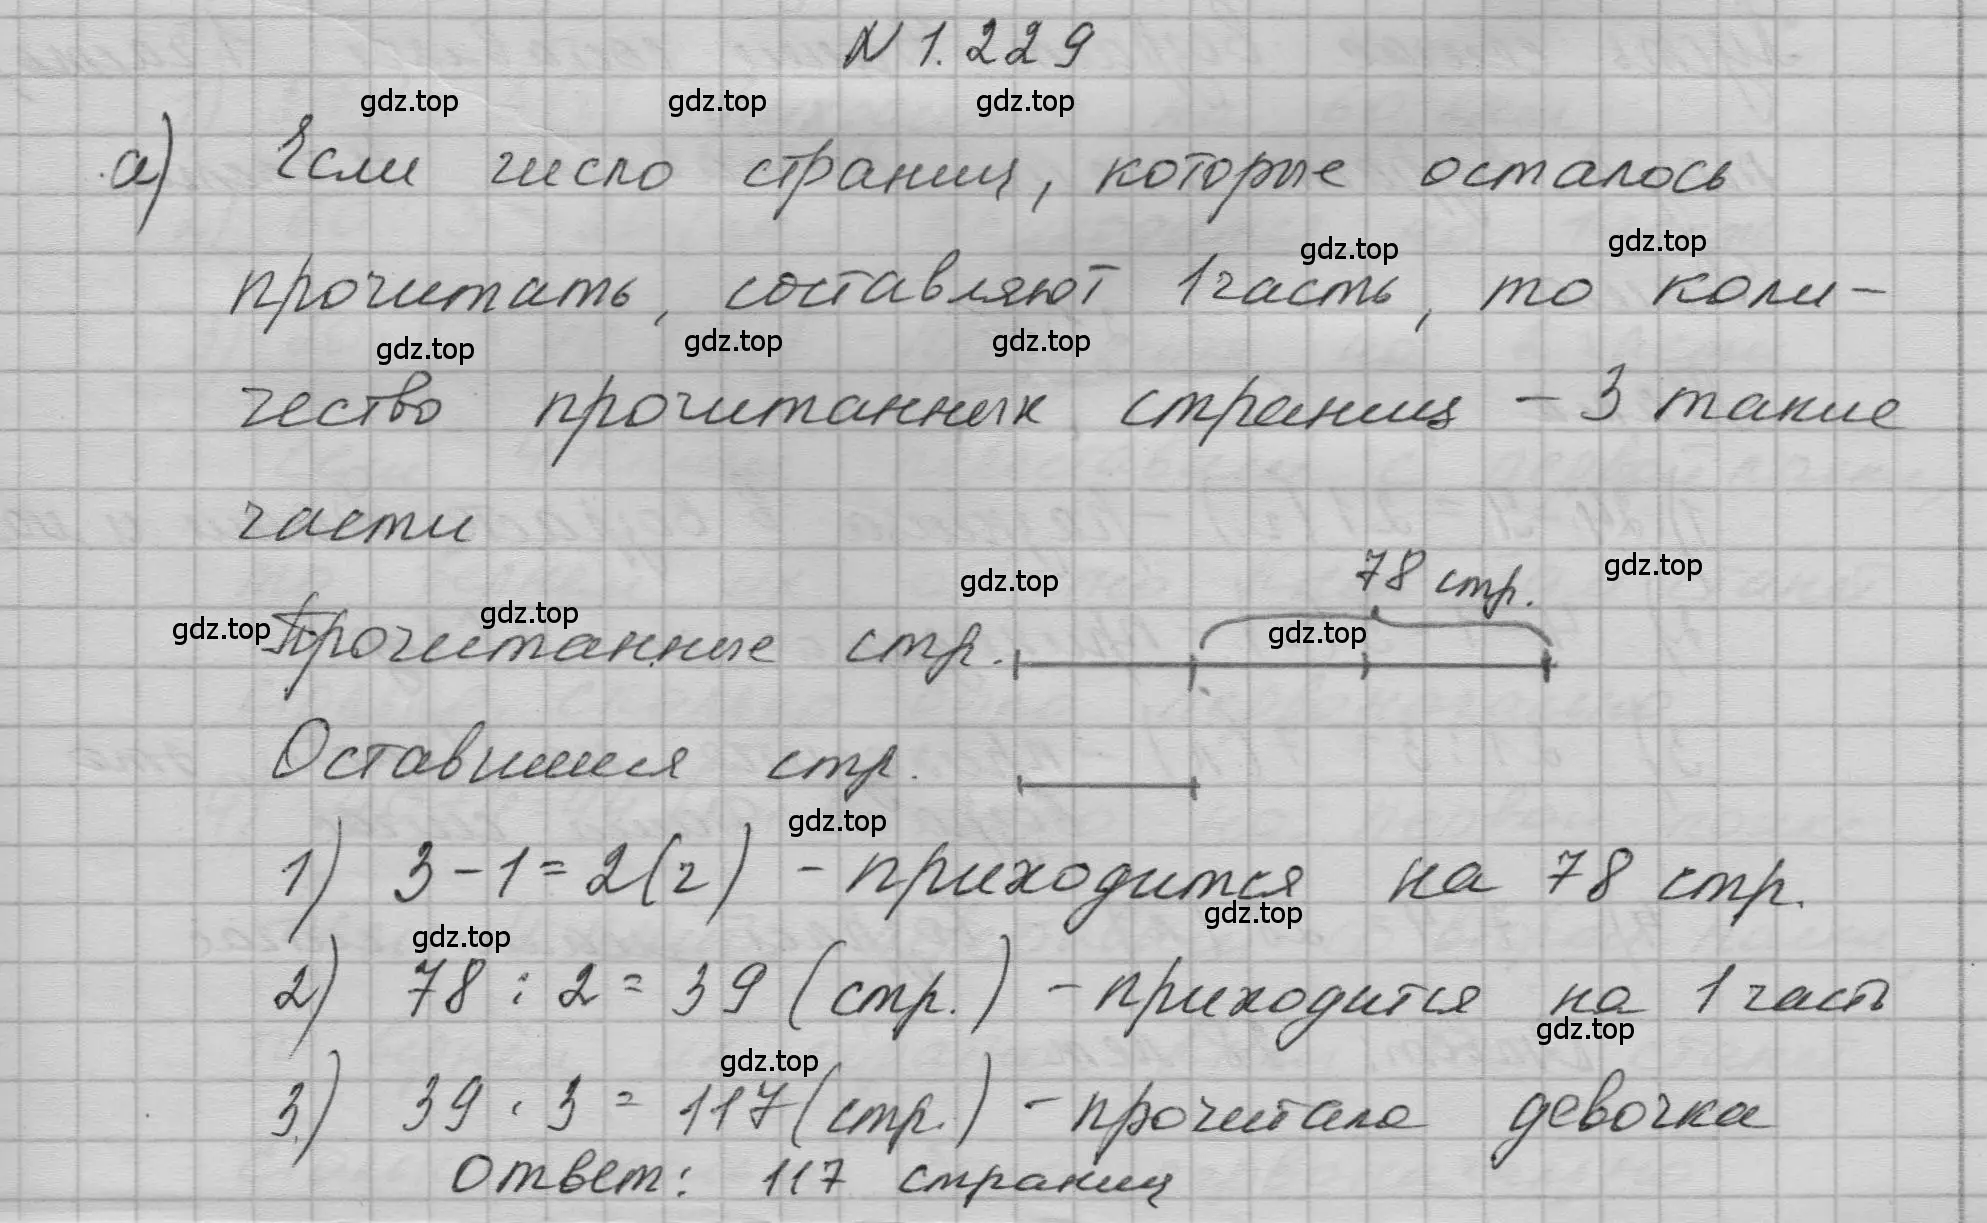 N 1.229
gdz.top gdz.top gdz.top
а) Если число страниц, которые осталось
gdz.top gdz.top
прочитать, составляют 1 часть, то коли-
gdz.top gdz.top gdz.top
чество прочитанных страниц - 3 такие
части
78 стр.
gdz.top gdz.top
gdz.top gdz.top gdz.top
Прочитанные стр.
Оставшиеся стр.
gdz.top
1) 3 - 1 = 2 (ч) - приходится на 78 стр.
gdz.top gdz.top
2) 78 : 2 = 39 (стр.) - приходится на 1 часть
gdz.top gdz.top
3) 39 · 3 = 117 (стр.) - прочитала девочка
Ответ: 117 страниц